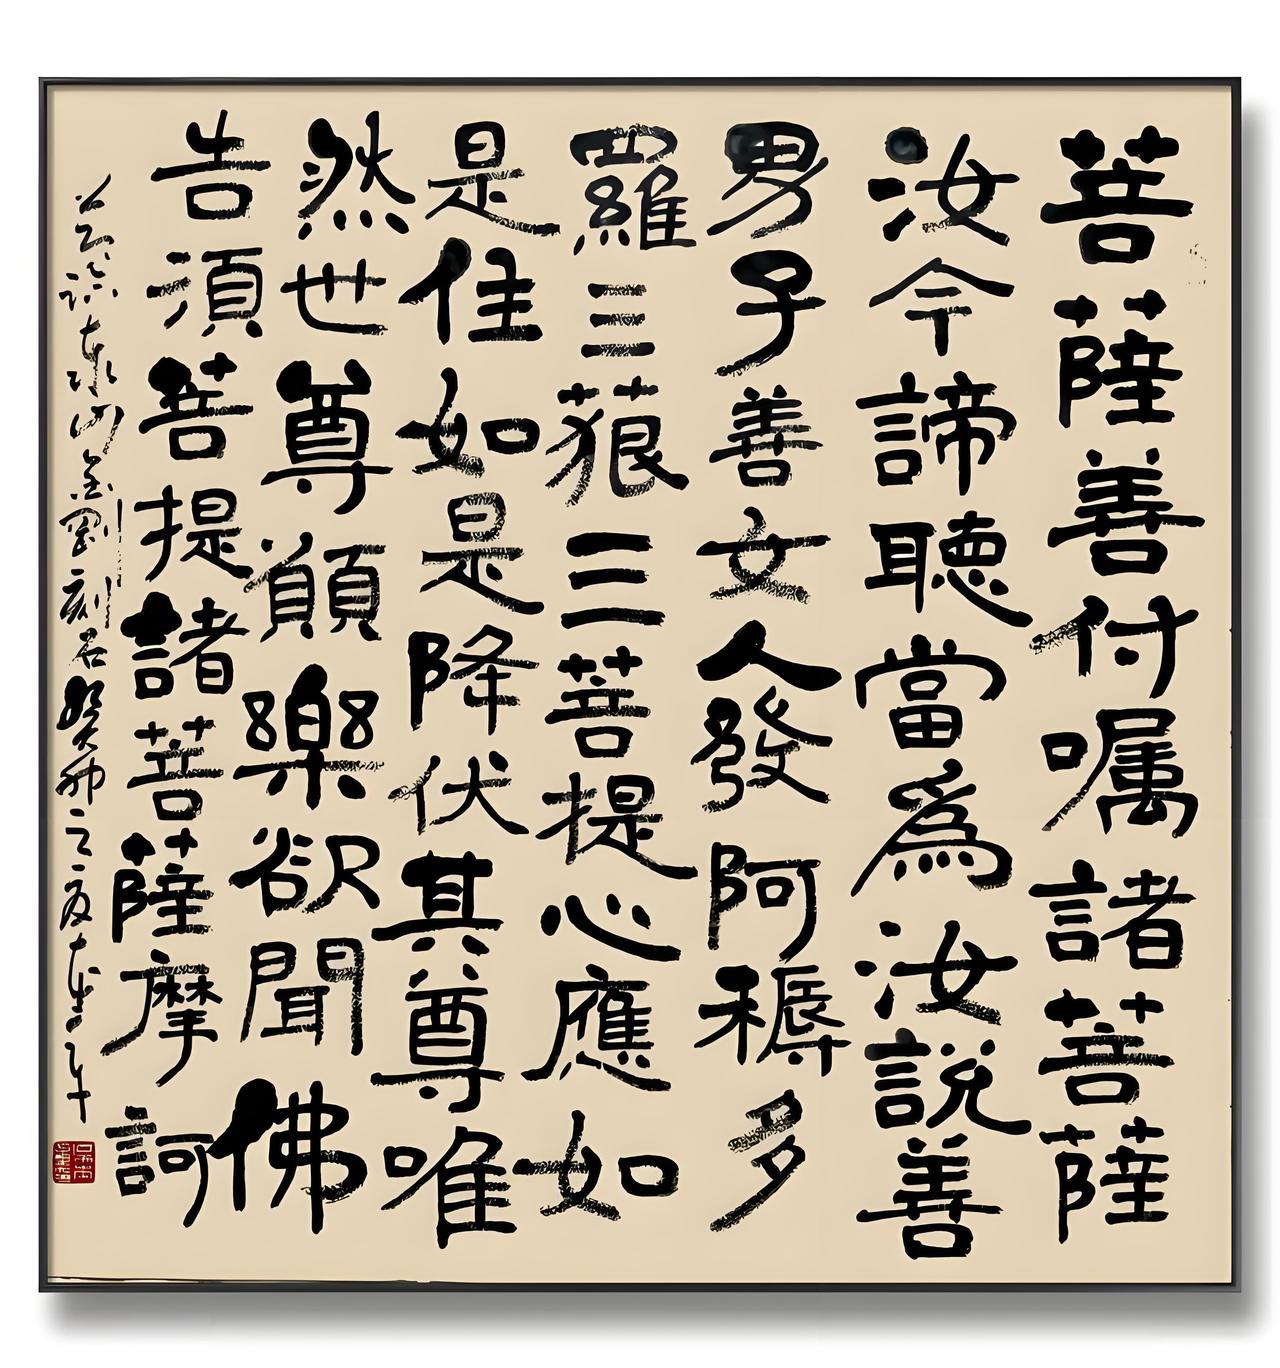 菩薩善付嘱諸菩薩
汝今諦聽當為汝説善
男子善女人發阿耨多
羅三藐三菩提心應如
是住如是降伏其尊唯
然世尊願樂欲聞佛
告須菩提諸菩薩摩訶
臨泰山金剛刻石癸卯之夏